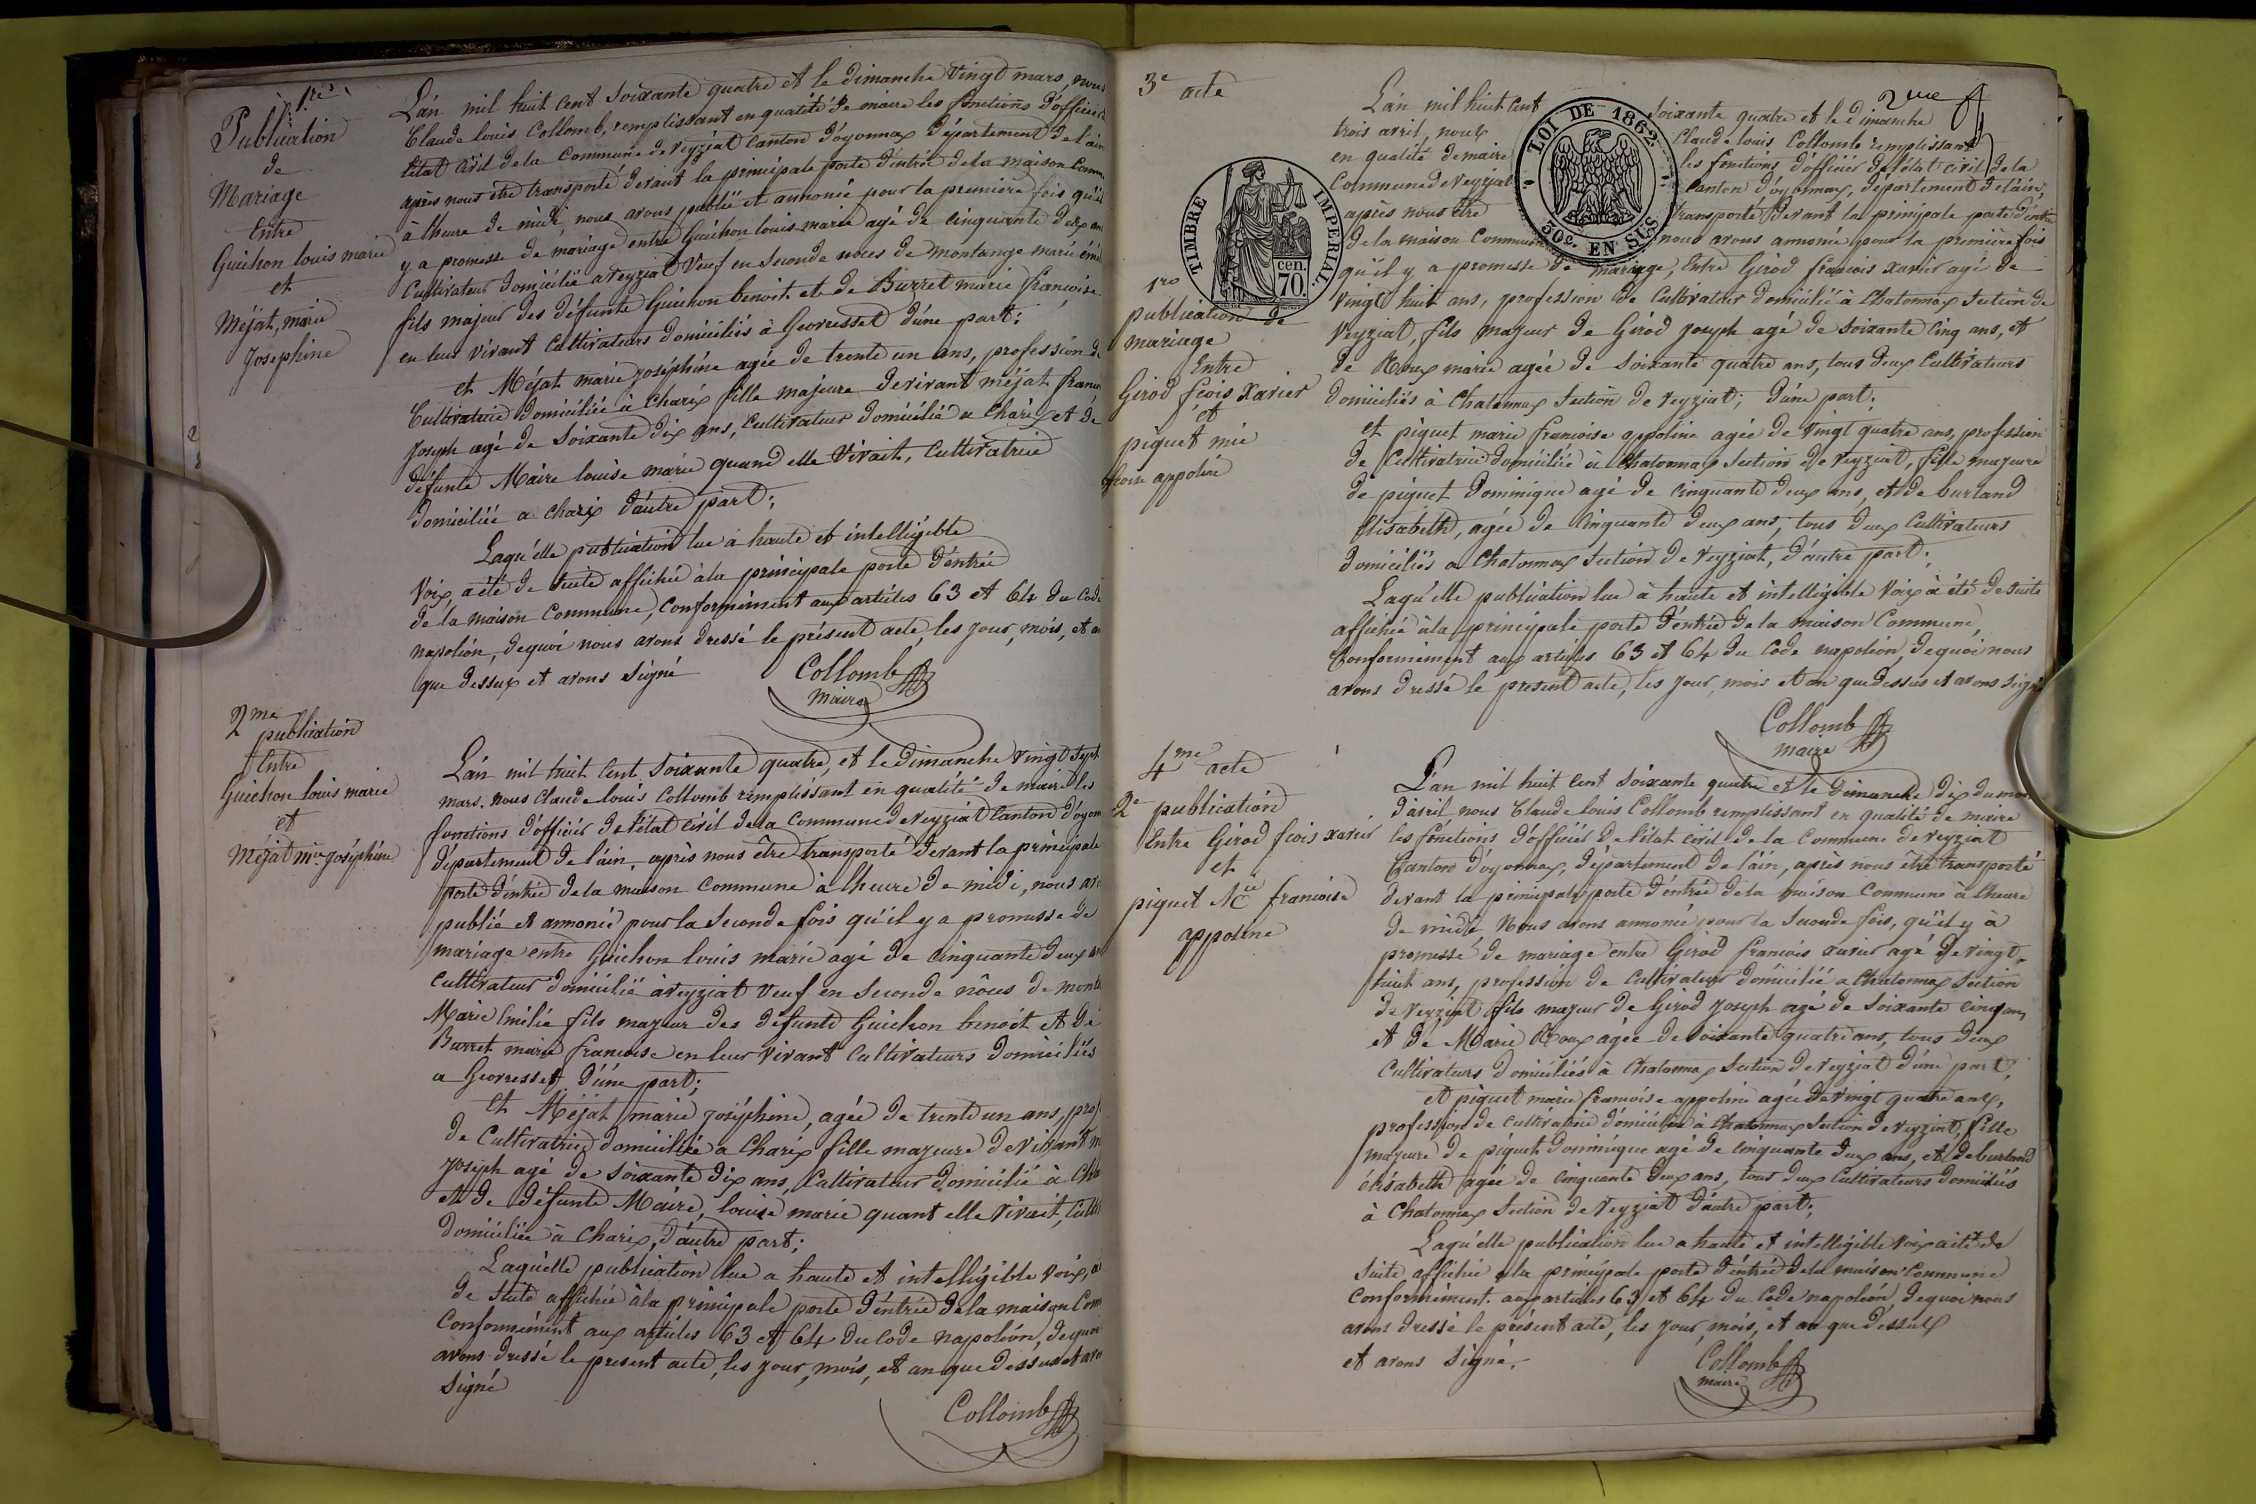 1re
Publication
de
Mariage
Entre
Guichon louis marie
et
Méjat, marie
Josephine
L'án mil huit cent soixante quatre et le dimanche vingt mars, nous
Claude louis Collomb, remplissant en qualité de maire les fonctions d'officier
l'état civil de la Commune de Veyziat Canton d'oyonnax département de l'ain
après nous être transporté devant la principale porte d'entrée de la maison Comm
à lheure de midi, nous avons publié et annoncé pour la première fois qu'il
y a promesse de mariage entre Guichon louis marie agé de cinquante deux ans
Cultivateur domicilié a Veyziat Veuf en seconde noces de montange marie émi
fils majeur des défunts Guichon benoit et de Burret marie françoise
en leur vivant Cultivateurs domiciliés à Geovresset d'úne part;
et Méjat marie joséphine agée de trente un ans, profession de
Cultivatrice domiciliée à Charix fille majeure de vivant méjat franc
Joseph agé de soixante dix ans, Cultivateur domicilié a Charix et de
défunte Maire louise marie quand elle Vivait, Cultivatrice
domiciliée a charix d'autre part;
Laqu'elle publication lue à haute et intelligible
Voix, a été de suite affichée à la principale porte d'entrée
de la maison Commune, Conformément aux articles 63 et 64 du Code
napoléon, dequoi nous avons dressé le présent acte, les jour, mois, et an
que dessus et avons signé
Collomb
Maire
2me
publication
Entre
Guichon louis marie
et
Méjat mie joséphine
L'án mil huit Cent soixante quatre, et le dimanche Vingt sept
mars. nous Claude louis Collomb remplissant en qualité de maire les
fonctions d'officier de l'état civil de la Commune de Veyziat Canton d'oyon
département de l'ain, après nous être transporté devant la principale
porte d'entrée de la maison Commune à lheure de midi, nous av
publié et annoncé pour la seconde fois qu'il y a promesse de
mariage entre Guichon louis marie agé de cinquante deux an
Cultivateur domicilié à Veyziat Veuf en seconde nôces de mont
Marie émilie fils majeur des défunts Guichon benoit et de
Burret marie francoise en leur vivant Cultivateurs domiciliés
a Geovresset d'úne part;
et Méjat marie joséphine, agée de trente un ans, prof
de Cultivatrice domiciliée a Charix fille majeure de vivant m
Joseph agé de soixante dix ans, Cultivateur domicilié à Cha
et de défunte Maire, louise marie quant elle vivait, Cult
domiciliée à Charix, d'autre part;
Laquelle publication lue a haute et intelligible voix, a
de suite affichée à la principale porte d'entrée de la maison Com
Conformément aux articles 63 et 64 du Code napoléon, dequoi
avons dressé le present acte, les jour, mois, et an que dessus et avo
signé
Collomb
3e acte
2me
TIMBRE IMPERIAL
cen.
70.
LOI DE 1862
50c. EN SUS
1re
publication de
mariage
Entre
Girod fcois Xavier
et
piquet mie
fcoise appoline
L'án mil huit Cent soixante quatre et le dimanche
trois avril, nous Claude louis Collomb remplissant
en qualité de maire les fonctions d'officier de l'état civil de la
Commune de Veyziat Canton d'oyonnax, département de l'ain,
après nous être transporté devant la principale porte d'entrée
de la maison Commune nous avons annoncé pour la première fois
qu'il y a promesse de mariage, Entre Girod francois xavier agé de
Vingt huit ans, profession de Cultivateur domicilié à Chatonnax section de
Veyziat, fils majeur de Girod joseph agé de soixante cinq ans, et
de Roux marie agée de soixante quatre ans, tous deux Cultivateurs
domiciliés à Chatonnax section de Veyziat; d'úne part;
et piquet marie francoise appoline agée de vingt quatre ans, profession
de Cultivatrice domiciliée à Chatonnax section de Veyziat, fille majeure
de piquet Dominique agé de cinquante deux ans, et de burland
élisabeth, agée de cinquante deux ans, tous deux Cultivateurs
domiciliés a Chatonnax section de Veyziat, d'autre part;
Laqu'elle publication lue à haute et intelligible Voix à été de suite
affichée à la principale porte d'entrée de la maison Commune,
Conformément aux articles 63 et 64 du Code napoléon, dequoi nous
avons dressé le présent acte, les jour, mois et an que dessus et avons signé
Collomb
maire
4me acte
2e publication
Entre Girod fcois xavier
et
piquet Mie francoise
appoline
L'an mil huit Cent soixante quatre et le dimanche dix du mois
d'avril nous Claude louis Collomb remplissant en qualité de maire
les fonctions d'officier de l'état civil de la Commune de Veyziat
Canton d'oyonnax, département de l'ain, après nous être transporté
devant la principale porte d'entrée de la maison Commune à lheure
de midi Nous avons annoncé pour la seconde fois, qu'il y à
promesse de mariage entre Girod francois xavier agé de vingt-
huit ans, profession de Cultivateur domicilié a Chatonnax section
de Veyziat fils majeur de Girod joseph agé de soixante cinq ans,
et de Marie Roux agée de soixante quatre ans, tous deux
Cultivateurs domiciliés à Chatonnax section de Veyziat d'úne part;
et piquet marie francoise appoline agée de vingt quatre ans,
profession de cultivatrice domiciliée à Chatonnax section de veyziat, fille
majeure de piquet dominique agé de cinquante deux ans, et de burland
élisabeth agée de cinquante deux ans, tous deux Cultivateurs domiciliés
à Chatonnax section de Veyziat d'autre part;
Laqu'elle publication lue a haute et intelligible voix a été de
suite affichée a la principale porte d'entrée de la maison Commune
Conformément aux articles 63 et 64 du Code napoléon, dequoi nous
avons dressé le présent acte, les jour, mois, et an que dessus
et avons signé.
Collomb
maire